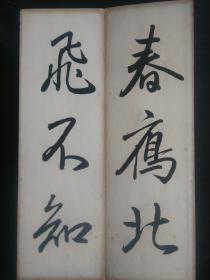 春雁北
飛不知